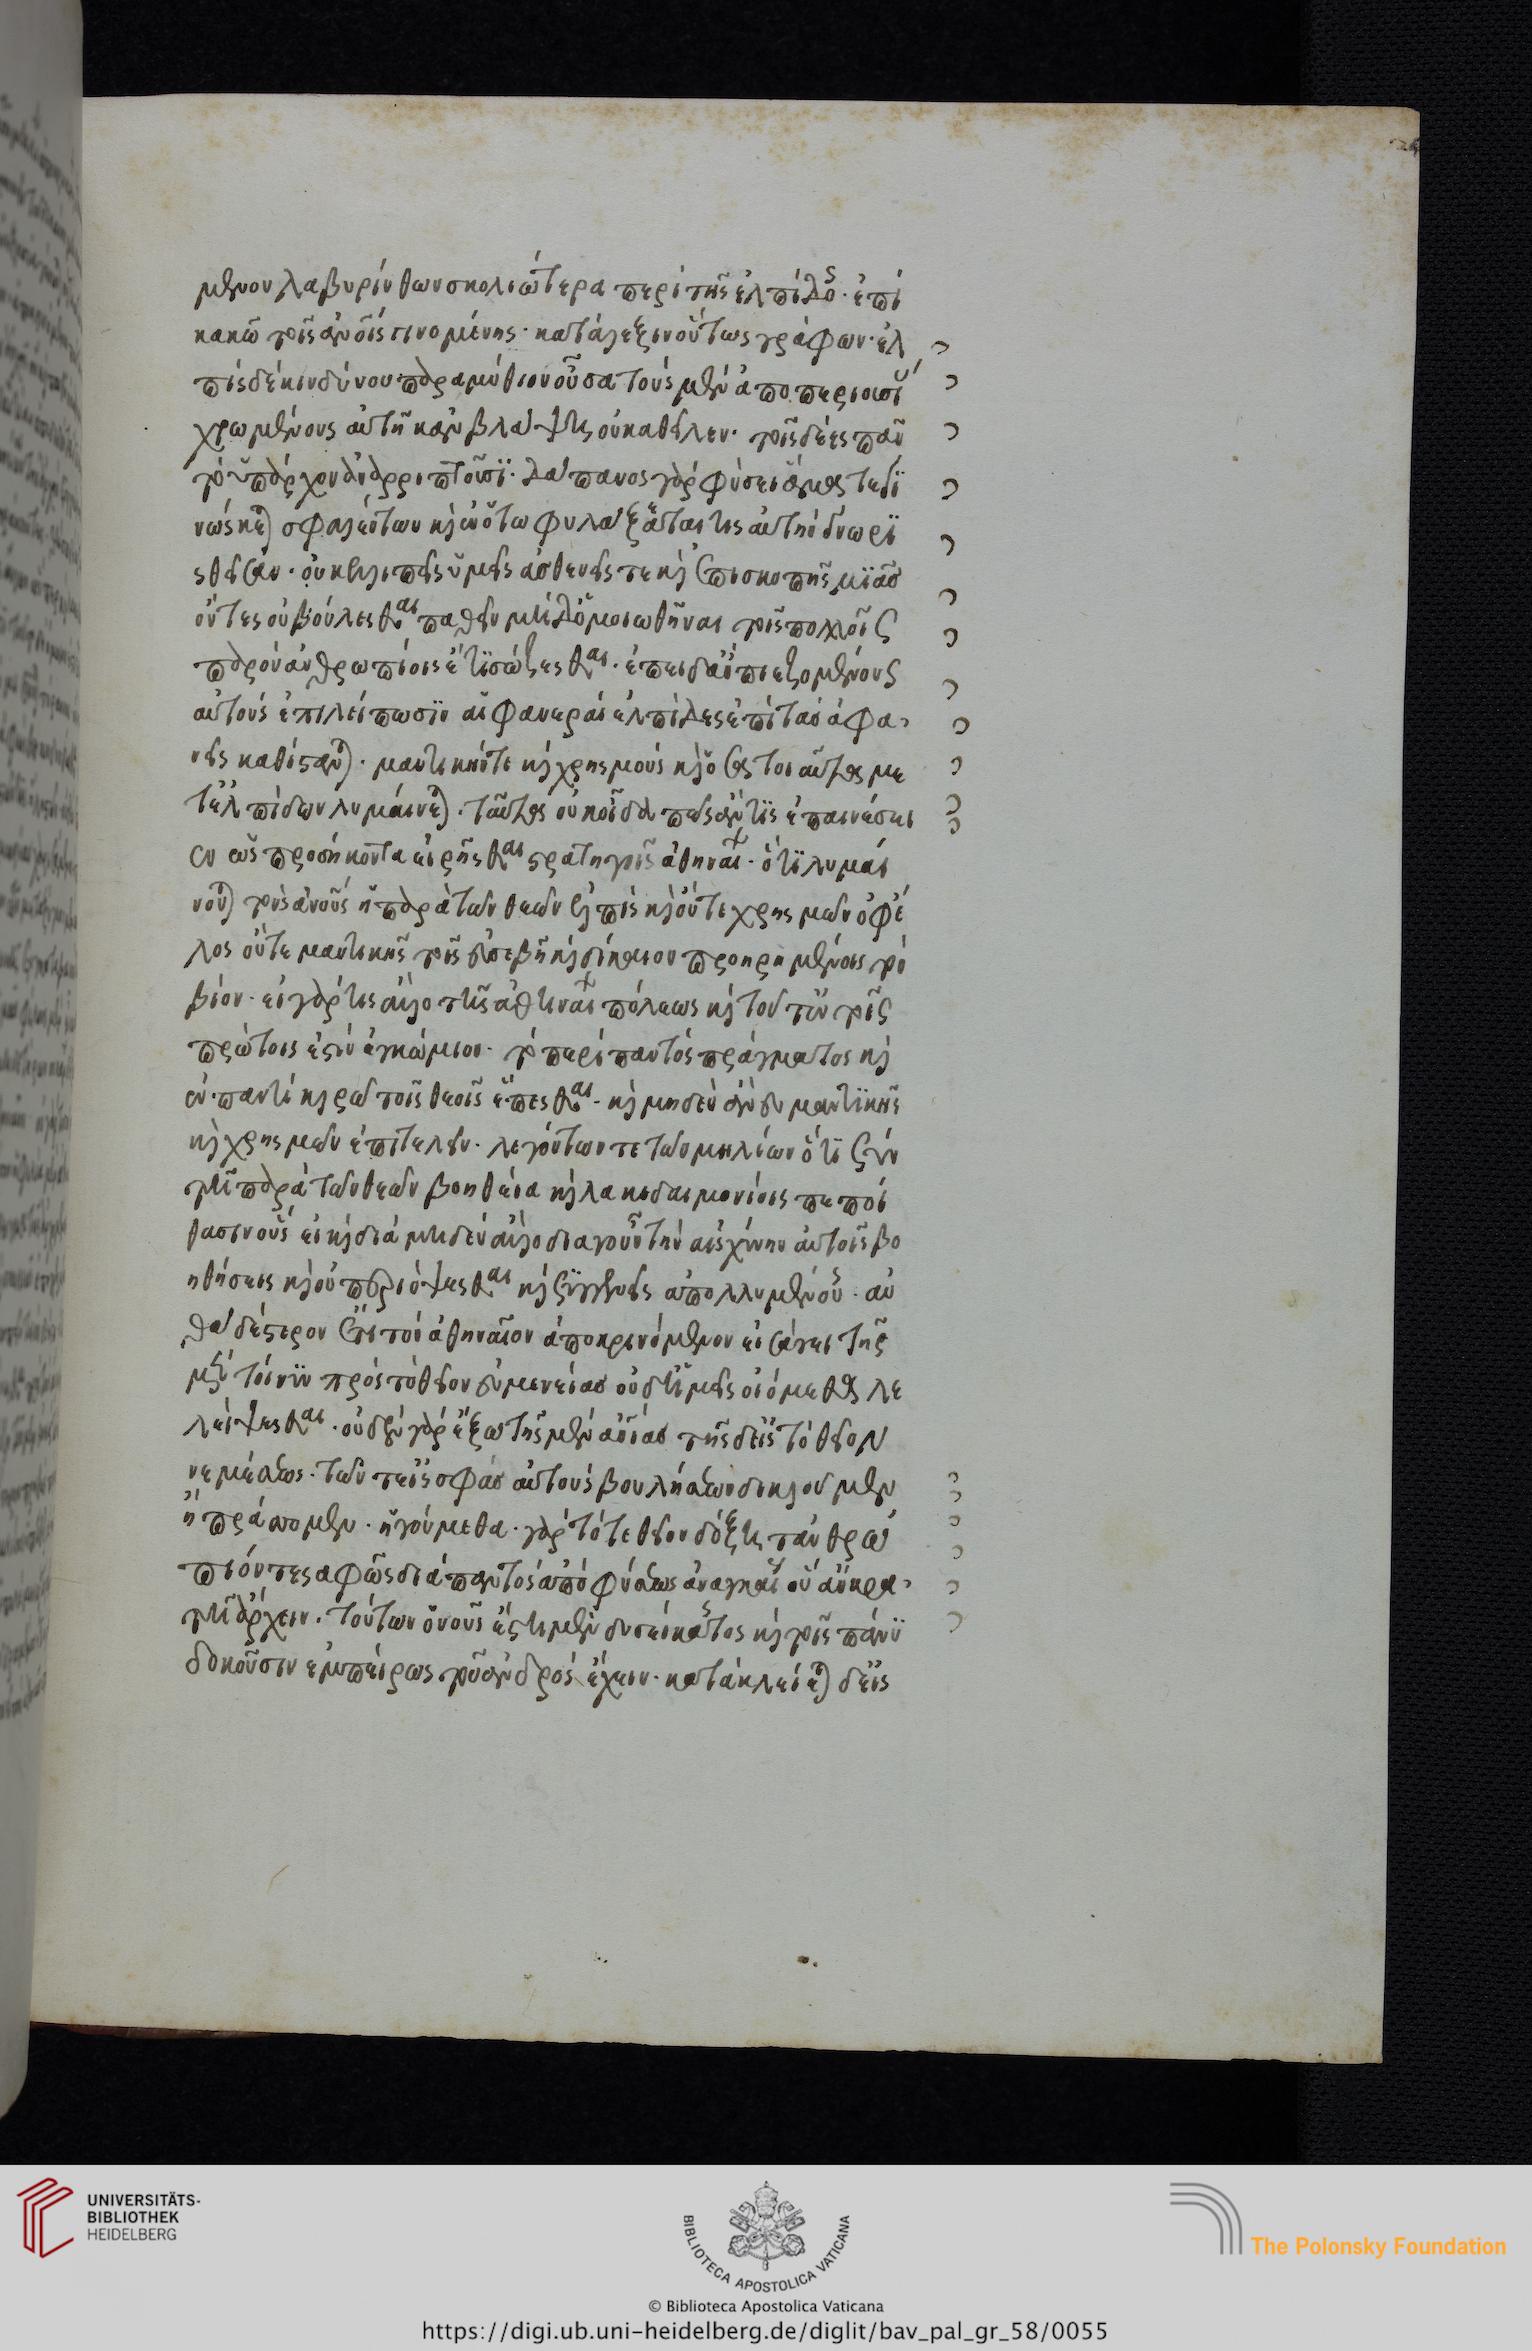 μενον λαβυρίνθων σκολιώτερα περὶ τῆς ἐλπίδος· ἐπὶ
κακῶ τοῖς ἀνοις γινομένης· κατὰ λέξιν οὕτως γράφων· ἐλ
πὶς δὲ κινδύνου παραμύθιον οὖσα τοὺς μὲν ἀπὸ περιουσί
χρωμένους αὐτῆ κἂν βλάψη οὐ καθεῖλεν· τοῖς δὲ ἐς πᾶν
τὸ ὑπάρχον ἀναρριπτοῦσι· δάπανος γὰρ φύσει ἅμα τε γι
νώσκεται σφαλέντων καὶ ἐν ὅτω φυλάξεταί τις αὐτὴν γνωρι
σθεῖσαν· οὐκ ἐλλείπει ὑμεῖς ἀσθενεῖς τε καὶ ἐπὶ σκοπῆς μιᾶς
ὄντες οὐ βούλεσθαι παθεῖν μὴδ' ὁμοιωθῆναι τοῖς πολλοῖς
παρὸν ἀνθρωπίοις ἔτι σώζεσθαι· ἐπειδὰν πιεζομένους
αὐτοὺς ἐπιλείπωσιν αἱ φανεραὶ ἐλπίδες ἐπὶ τὰς ἀφα
νεῖς καθίστανται· μαντικήν τε καὶ χρησμοὺς καὶ ὅσα τοιαῦτα με
τ' ἐλπίδων λυμαίνεται· ταῦτα οὐκ οἶδα πῶς ἄν τις ἐπαινέσει
εν ὡς προσήκοντα εἰρῆσθαι στρατηγοῖς ἀθηναί· ὅτι λυμαί
νεται τοὺς ἀνους ἡ παρὰ τῶν θεῶν ἐλπὶς καὶ οὔτε χρησμῶν ὄφε
λος οὔτε μαντικῆς τοῖς εὐσεβῆ καὶ δίκαιον προηρημένοις τὸν
βίον· εἰ γάρ τι ἄλλο τῆς ἀθηναί πόλεως καὶ τοῦτ' ἐν τοῖς
πρώτοις ἐστὶν ἐγκώμιον· τὸ περὶ παντὸς πράγματος καὶ
ἐν παντὶ καιρῶ τοῖς θεοῖς ἕπεσθαι· καὶ μηδὲν ἄνευ μαντικῆς
καὶ χρησμῶν ἐπιτελεῖν· λεγόντων τε τῶν μηλίων ὅτι σὺν
τῆ παρὰ τῶν θεῶν βοηθεία καὶ λακεδαιμονίοις πεποί
θασιν οὓς εἰ καὶ διὰ μηδὲν ἄλλο διά γοῦν τὴν αἰσχύνην αὐτοῖς βο
ηθήσειν καὶ οὐ περιόψεσθαι καὶ συγγενεῖς ἀπολλυμένους· αὐ
θαδέστερον ἔτι τὸν ἀθηναῖον ἀποκρινόμενον εἰσάγει τῆς
μὲν τοίνυν πρὸς τὸ θεῖον εὐμενείας οὐδ' ἡμεῖς οἰόμεθα λε
λείψεσθαι· οὐδὲν γὰρ ἔξω τῆς μὲν ἀνίας τῆς δ' εἰς τὸ θεῖον
νεμέσεως· τῶν τ' εἰς σφᾶς αὐτοὺς βουλήσεων δικαιοῦμεν
ἢ πράσσομεν· ἡγούμεθα· γὰρ τό τε θεῖον δόξη τἀνθρώ
πιόν τε σαφῶς διὰ παντὸς ἀπὸ φύσεως ἀναγκαί οὗ ἂν κρα
τῆ ἄρχειν· τούτων ὁ νοῦς ἔστι μὲν δυσείκαστος καὶ τοῖς πάνυ
δοκοῦσιν ἐμπείρως τοῦ ἀνδρὸς ἔχειν· κατακλείεται δ' εἰς
UNIVERSITÄTS-
BIBLIOTHEK
HEIDELBERG
BIBLIOTECA APOSTOLICA VATICANA
The Polonsky Foundation
© Biblioteca Apostolica Vaticana
https://digi.ub.uni-heidelberg.de/diglit/bav_pal_gr_58/0055